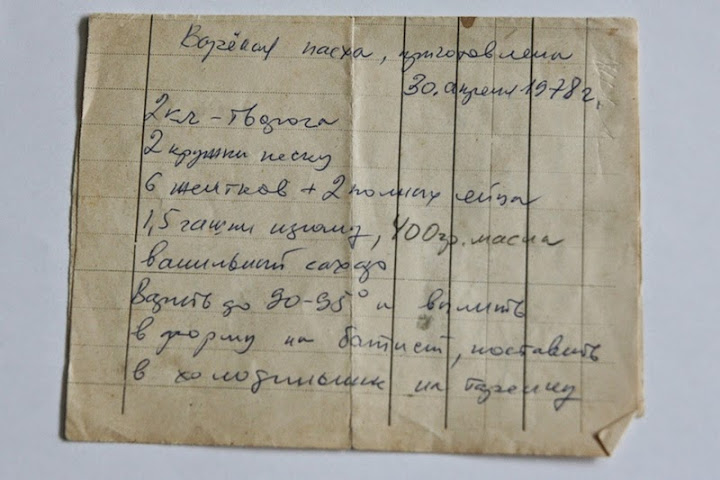 Варёная пасха, приготовлена
30. апреля 1978 г.
2 кг - творога
2 кружки песку
6 желтков + 2 полных яйца
1,5 чашки изюму, 400 гр. масла
ванильный сахар
Варить до 90-95° и вылить
в форму на батист, поставить
в холодильник на тарелку